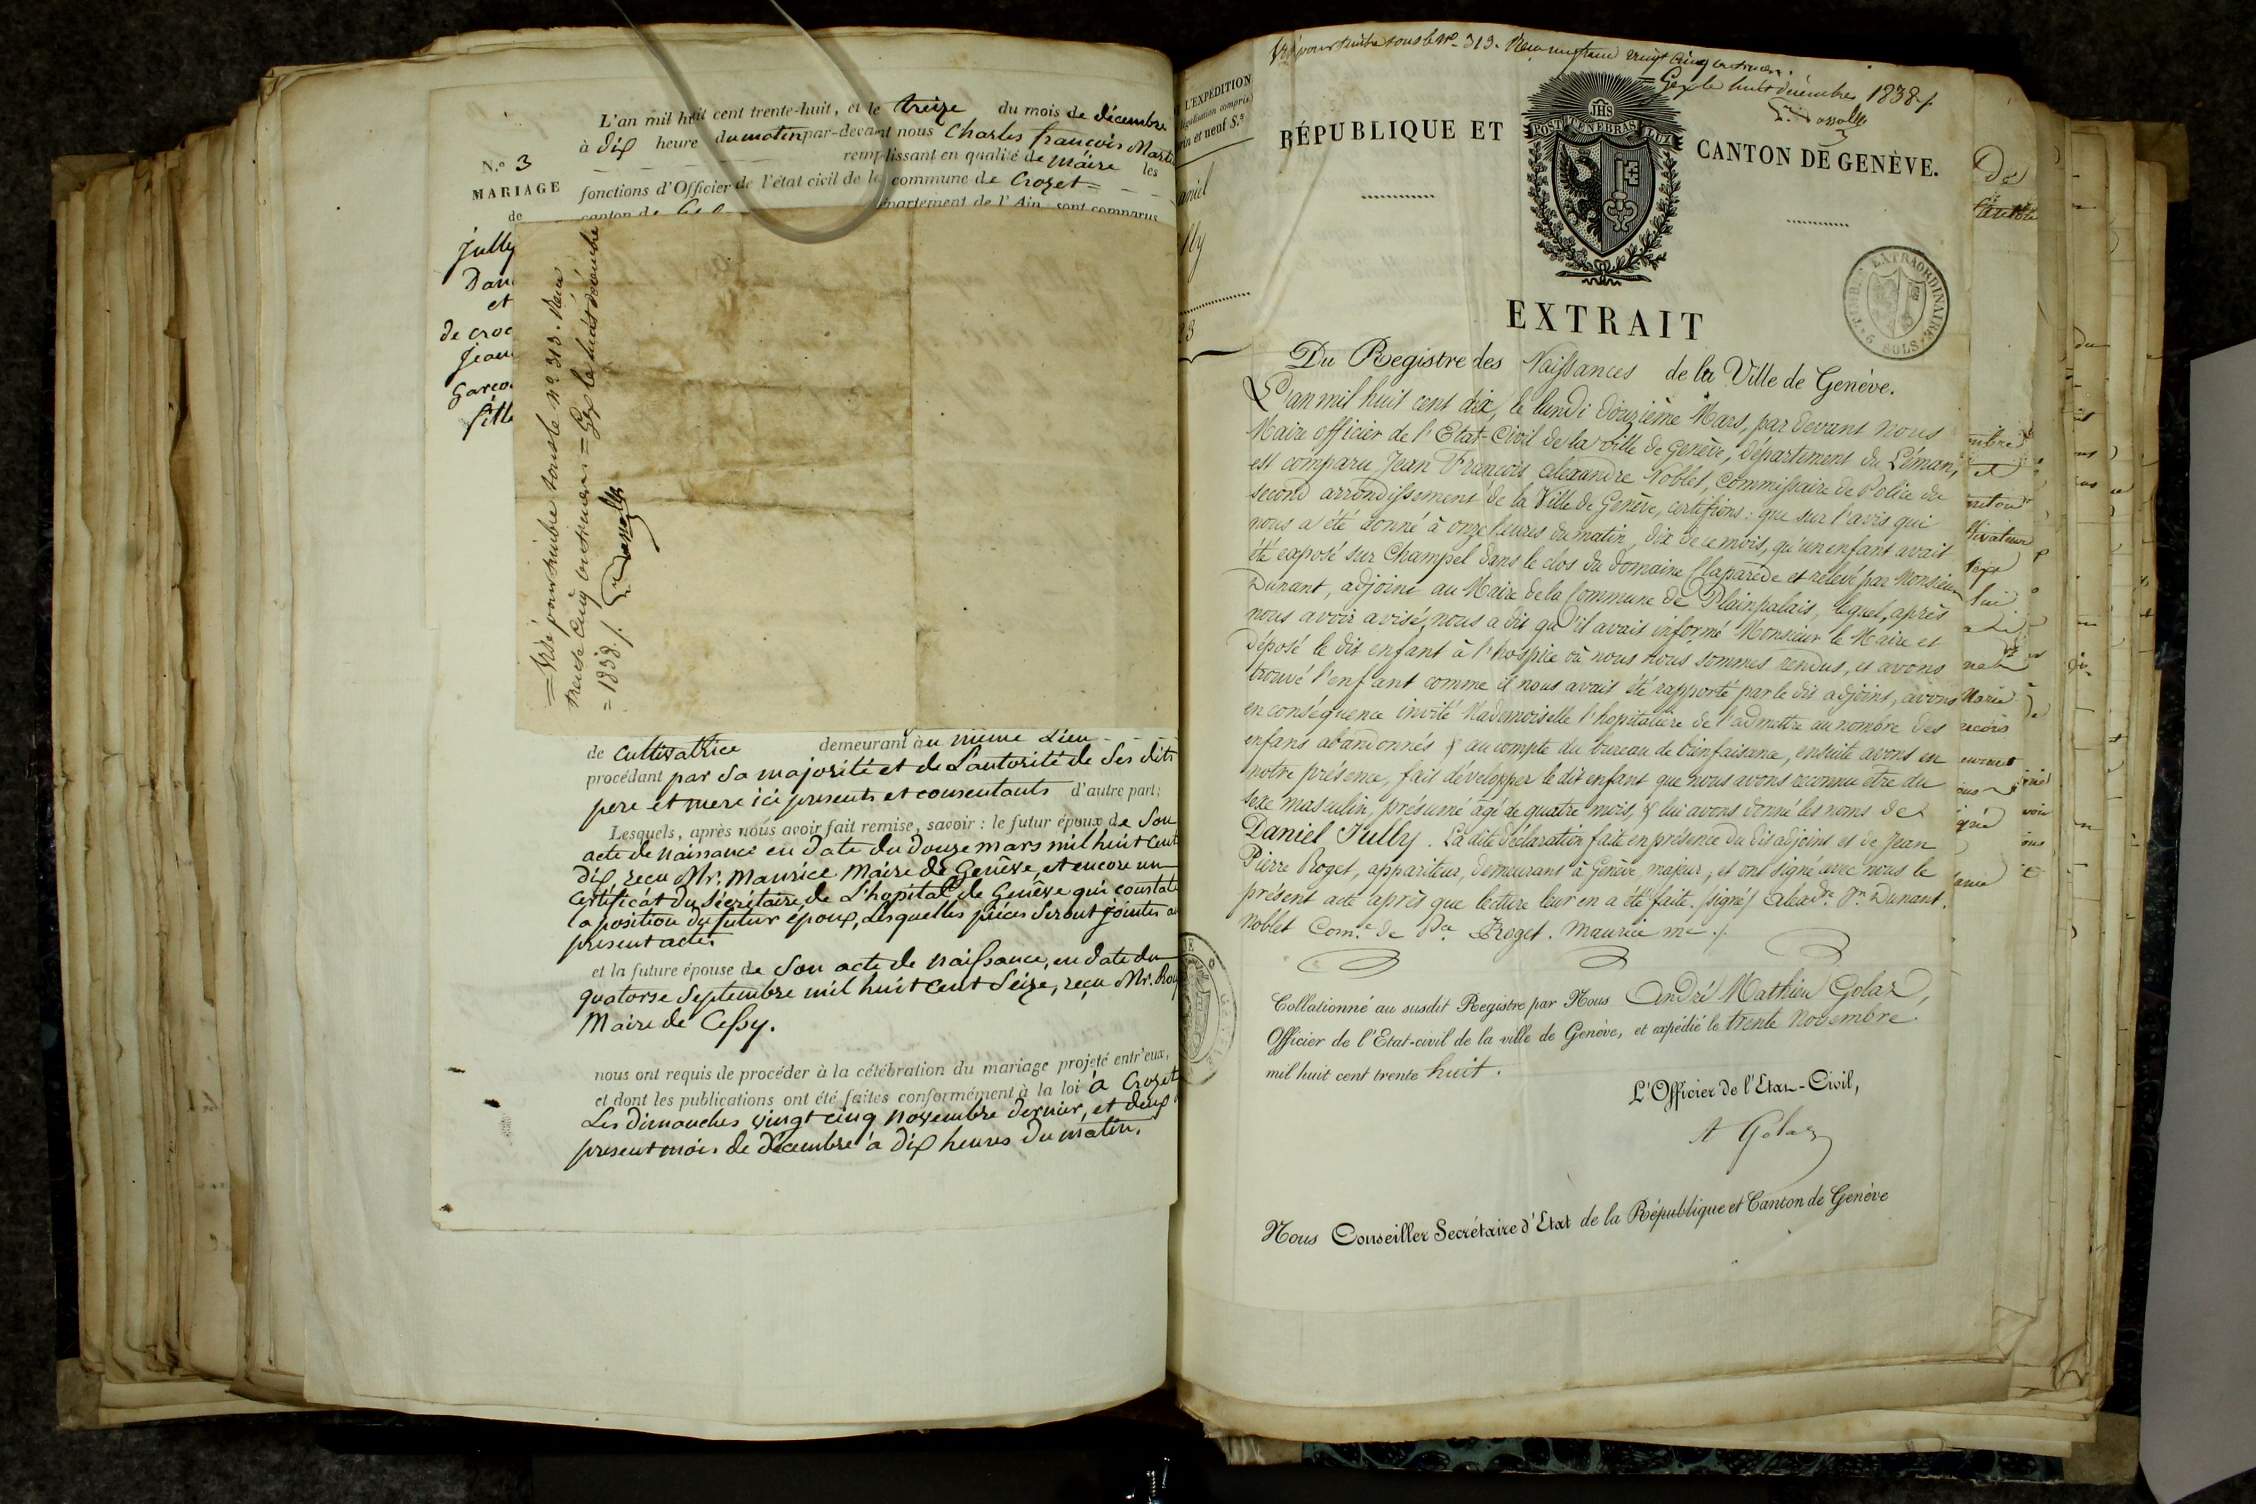 L'an mil huit cent trente-huit, et le treize du mois de décembre
à dix heure du matin par-devant nous Charles françois
remplissant en qualité de Maire les
fonctions d'Officier de l'état civil de la commune de Crozet =
canton de Gex département de l'Ain sont comparus
N.o 3
MARIAGE
de
Jully
Dani
et
de croc
Jean
garço
fille
= Visé pour timbre sous le n.o 313. Reçu
trente cinq centimes = Gex le huit décembre
= 1838 /.
de cultivatrice demeurant au même Lieu
procédant par sa majorité et de L'autorité de ses dits
pere et mere ici presents et consentants d'autre part;
Lesquels, après nous avoir fait remise, savoir: le futur époux de Son
acte de naissance en date du douze mars mil huit cent
dix, reçu Mr. Maurice Maire de Genêve, et encore un
certificat du Sécrétaire de L'hopital de Genêve qui constate
la position du futur époux, lesquelles pièces seront jointes au
present acte.
et la future épouse de Son acte de naissance, en date du
quatorse Septembre mil huit cent Seize, reçu Mr.
Maire de Cessy.
nous ont requis de procéder à la célébration du mariage projeté entr'eux,
et dont les publications ont été faites conformément à la loi à Crozet
Les dimanches vingt cinq novembre dernier, et deux
present mois de décembre à dix heures du matin.
L'EXPÉDITION
légalisation compris
et neuf S.s
aniel
lly
Visé pour timbre sous le N.o 313. Reçu
Gex le huit décembre 1838 /.
RÉPUBLIQUE ET CANTON DE GENÈVE.
JHS
POST TENEBRAS LUX
TIMB. EXTRAORDINAIRE
5 SOLS
EXTRAIT
Du Registre des Naissances de la Ville de Genève.
L'an mil huit cent dix, le lundi douzième Mars, par devant nous
Maire officier de l'Etat-Civil de la ville de Genève, département du Léman,
est comparu Jean François Aléxandre Noblet, Commissaire de Police du
second arrondissement de la Ville de Genève, certifions: que sur l'avis qui
nous a été donné à onze heures du matin, dix de ce mois, qu'un enfant avait
été exposé sur Champel dans le clos du domaine Claparède et relevé par Monsieur
Dunant, adjoint au Maire de la Commune de Plainpalais, lequel, après
nous avoir avisé, nous a dit qu'il avait informé Monsieur le Maire et
déposé le dit enfant à l'hospice où nous nous sommes rendus, et avons
trouvé l'enfant comme il nous avait été rapporté par le dit adjoint, avons
en conséquence invité Mademoiselle l'hopitalière de l'admettre au nombre des
enfans abandonnés & au compte du bureau de bienfaisance, ensuite avons en
notre présence, fait développer le dit enfant que nous avons reconnu être du
sexe masculin, présumé âgé de quatre mois, & lui avons donné les noms de
Daniel Jully. La dite déclaration faite en présence du dit adjoint et de Jean
Pierre Roget, appariteur, demeurant à Genève, majeur, et ont signé avec nous le
présent acte après que lecture leur en a été faite, (signé) Alexdre. Dunant.
Noblet Com.e de P.ce Roget. Maurice m.e /.
Collationné au susdit Registre par Nous André Mathieu Golaz,
Officier de l'Etat-civil de la ville de Genève, et expédié le trente Novembre
mil huit cent trente huit.
L'Officier de l'Etat-Civil,
A Golaz
Nous Conseiller Secrétaire d'Etat de la République et Canton de Genève